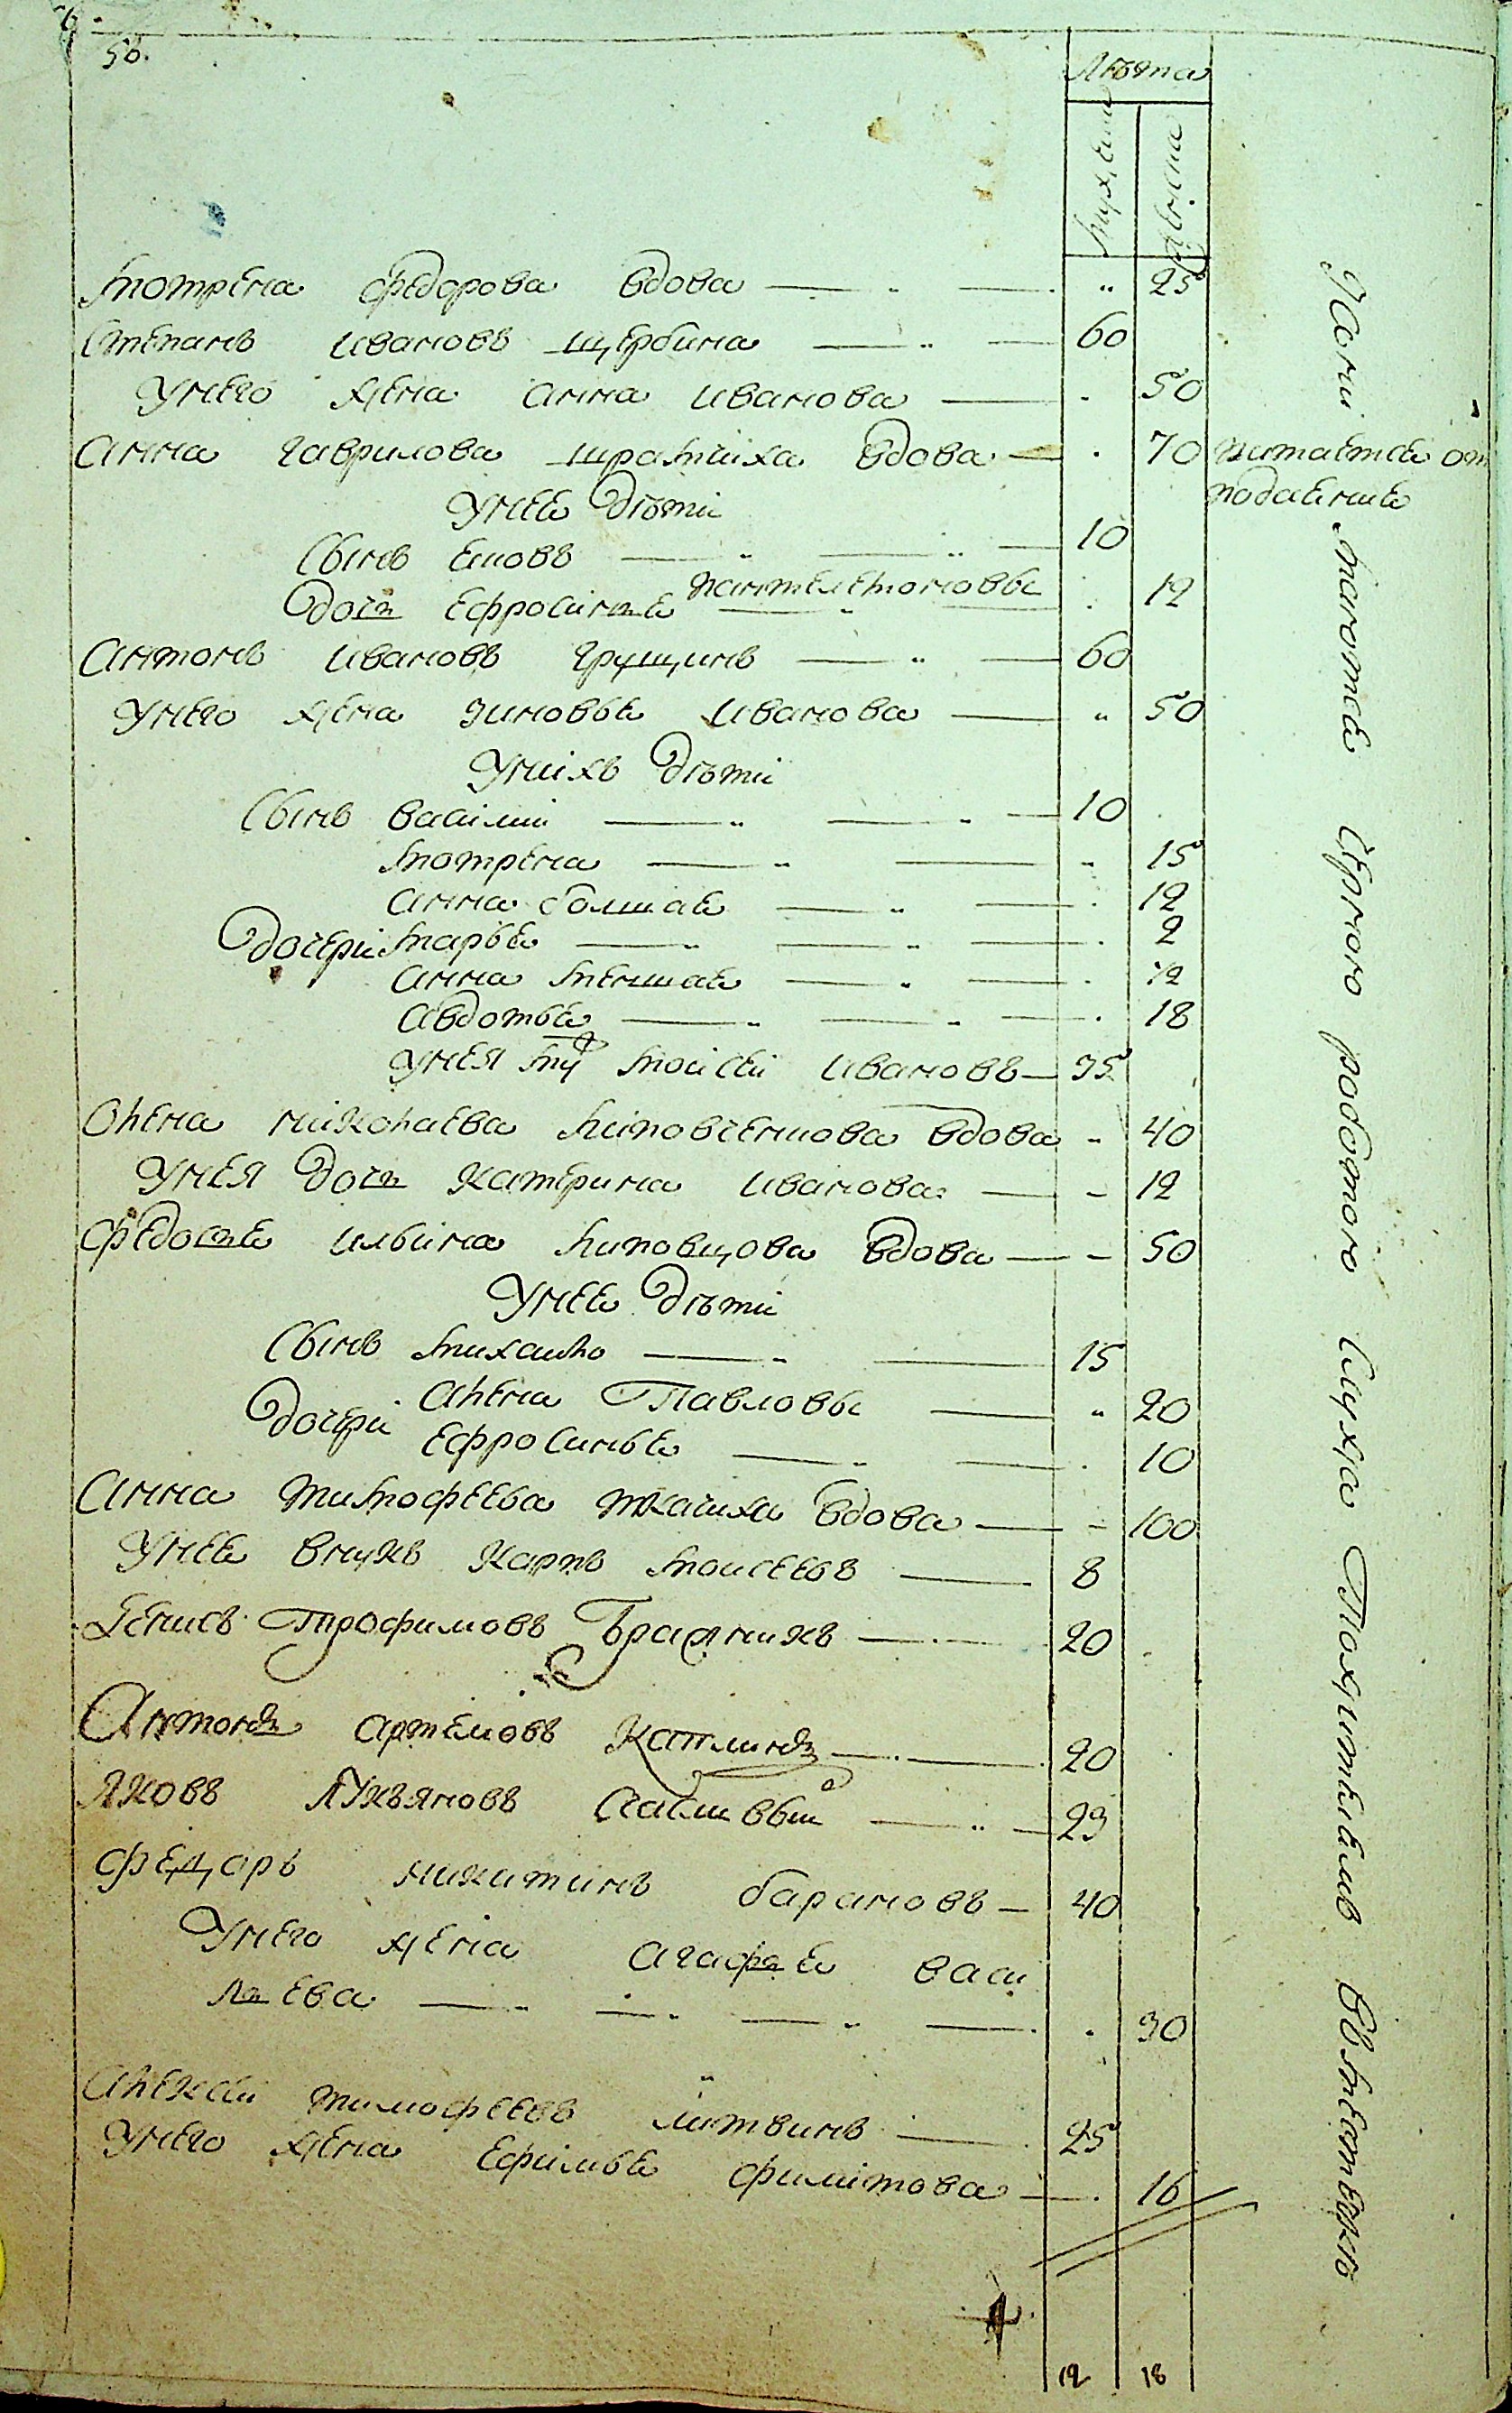 50.
Лѣта
мужеска
женска
Мотрена Федорова вдова — „ — „ 25
Степанъ Ивановъ Щербина — „ — 60
Унего жена Анна Иванова — . 50
Анна Гаврилова вдова — . 70 питается от
подаение
Унее дѣти
Сынъ — „ — „ — 10
дочь Ефросинья Пантелемоновы — „ — . 12
Антонъ Ивановъ Грущинъ — „ — 60
Унего жена Зиновья Иванова — „ 50
Унихъ дѣти
Сынъ Василій — „ — „ — 10
Мотрена — „ — „ 15
Анна болшая — „ — . 12
Дочери Марья — „ — „ — . 2
Анна меншая — „ — . 12
Авдотья — „ — „ — . 18
Унея му Моисей Ивановъ — 35
Олена Николаева вдова - 40
Унея дочь Катерина Иванова — - 12
Федосья Ильина вдова — - 50
Унее дѣти
Сынъ Михайло — „ — 15
Дочери Алена Павловы — „ 20
Ефросинья — „ — . 10
Анна Тимофеева Ткачиха вдова — - 100
Унее внукъ Карпъ Моисеевъ — 8
Денисъ Трофимовъ Бражникъ — . — 20
Антонъ Артемовъ Каплинъ — . — 20
Яковъ Лукьяновъ — „ — 23
Федоръ Никитинъ Барановъ — 40
Унего жена Агафья Васи
льева — „ — „ — „ — . . 30
Алексей Тимофеевъ Литвинъ — 25
Унего жена Ефимья Филипова — . 16
12 18
Черного работою